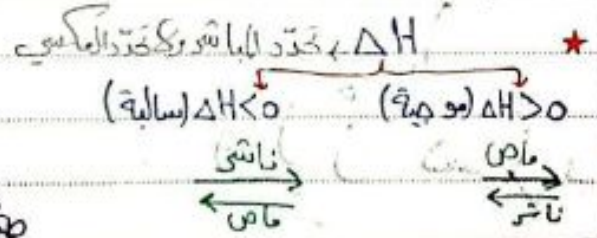 ★ ΔH تحدد المباشر ولا تحدد العكسي
ΔH>0 (موجبة) ΔH<0 (سالبة)
ماص ناشر
ناشر ماص